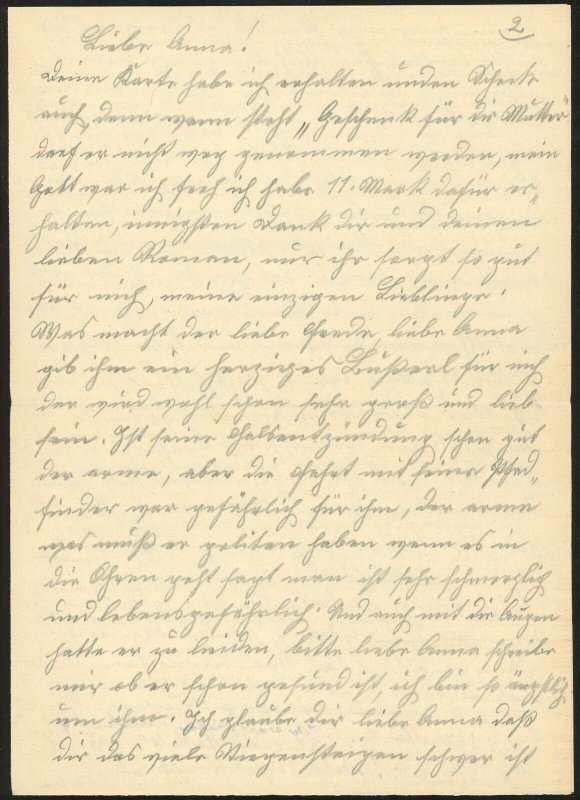 2
Liebe Anna!
Deine Karte habe ich erhalten und den Scheck
auch, denn wenn steht „Geschenk für die Mutter"
darf er nicht weg genommen werden, mein
Gott war ich froh ich habe 11. Mark dafür er„
halten, innigsten Dank dir und deinen
lieben Roman, nur ihr sorgt so gut
für mich, meine einzigen Lieblinge.
Was macht der liebe Frede, liebe Anna
gib ihm ein herziges Bußerl für mich
der wird wohl schon sehr groß und lieb
sein. Ist seine Halsentzündung schon gut
der arme, aber die Fahrt mit seinen Pfad„
finder war gefährlich für ihm, der arme
was muß er geliten haben wenn es in
die Ohren geht sagt man ist sehr schmerzlich
und lebensgefährlich. Und auch mit die Augen
hatte er zu leiden, bitte liebe Anna schreibe
mir ob er schon gesund ist, ich bin so ängstlich
um ihm. Ich glaube dir liebe Anna daß
dir das viele Stiegensteigen schwer ist